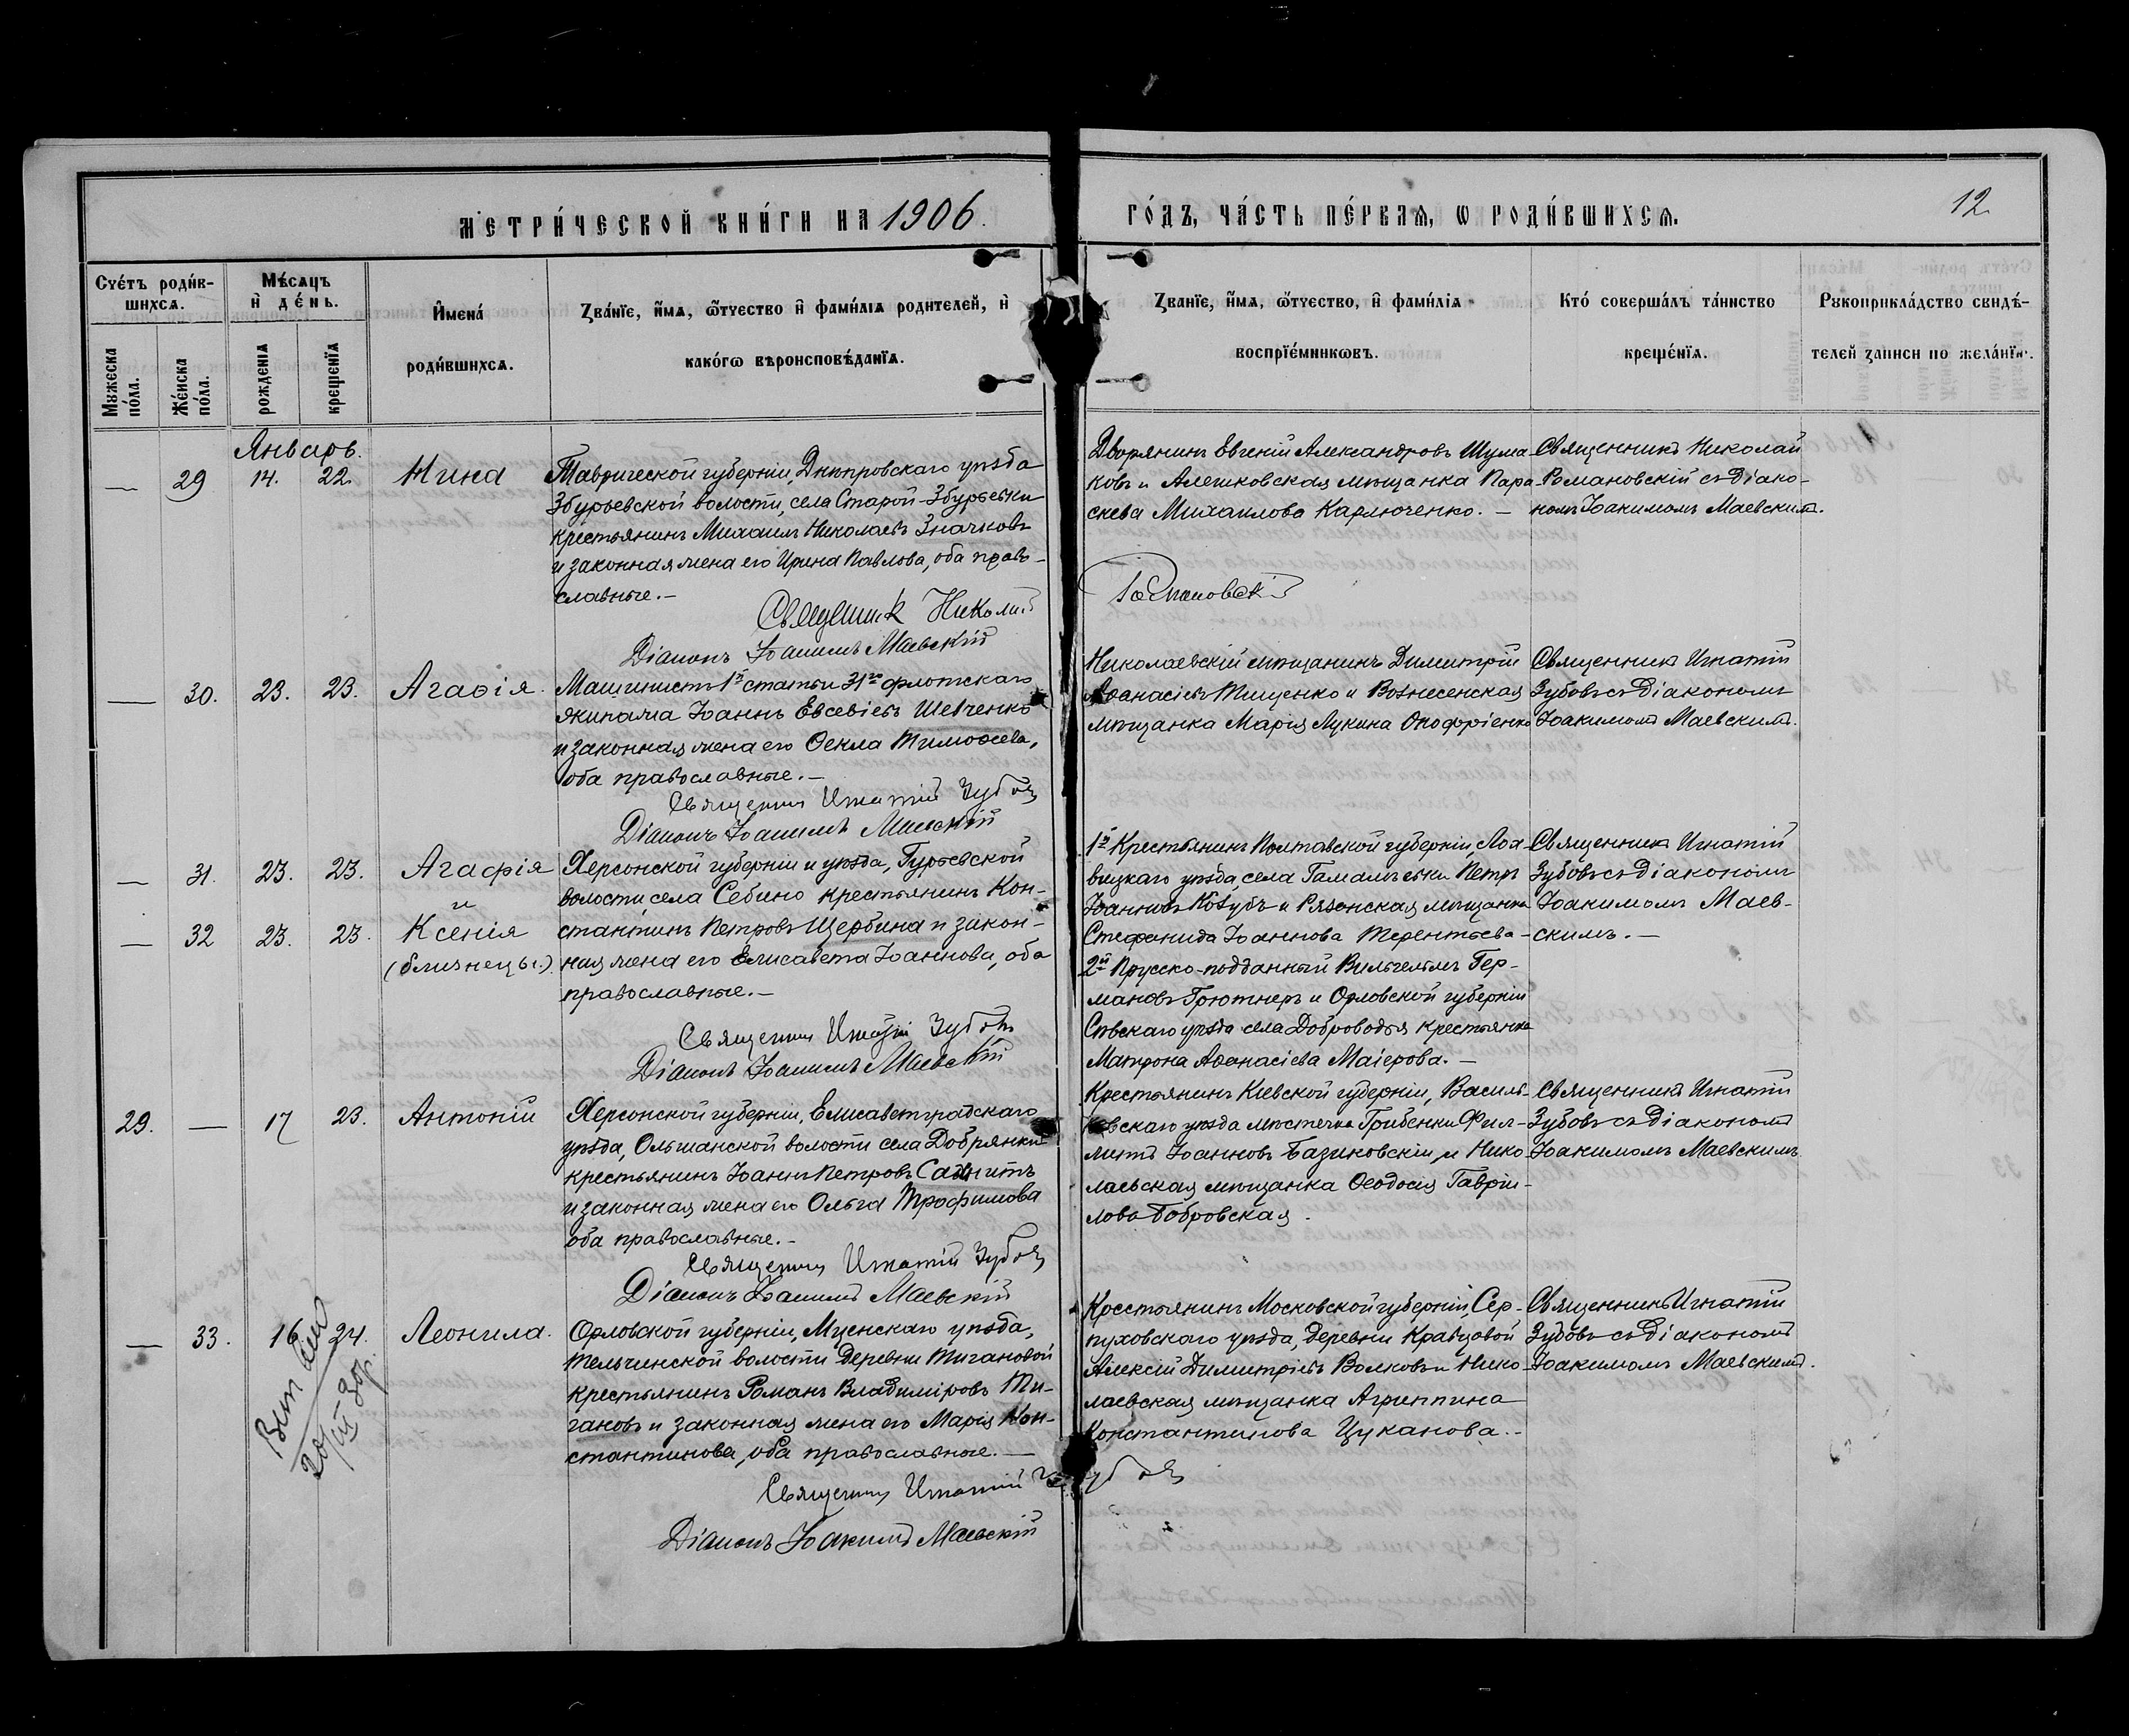 МЕТРИ́ЧЕСКОЙ КНИ́ГИ НА 1906.
ГО́ДЪ, ЧА́СТЬ ПЕ́РВАѦ, Ѡ РОДИ́ВШИХСѦ.
12
Счетъ родив-
шихсѧ.
Мужеска
пола.
Женска
пола.
Мѣсѧцъ
и день.
рожденіѧ
крещенїѧ
Имена
родившихсѧ.
Званїе, имѧ, ѿчество и фамиліѧ родителей, и
какогѡ вѣроисповѣданїѧ.
Званїе, имѧ, ѿчество, и фамиліѧ
воспрїемникѡвъ.
Кто совершалъ таинство
крещенїѧ.
Рукоприкладство свидѣ-
телей записи по желанїю.
Январь.
— 29 14. 22. Нина
Таврической губерніи, Днѣпровскаго уѣзда
Збурьевской волости, села Старой-Збурьевки
крестьянинъ Михаилъ Николаевъ Значковъ
и законная жена его Ирина Павлова, оба право-
славные.—
Священникъ Николай
Романовскій
Діаконъ Іоакимъ Маевскій
Дворянинъ Евгеній Александровъ Шума-
ковъ и Алешковская мѣщанка Пара-
скева Михаилова Карлюченко. —
Священникъ Николай
Романовскій съ Діако-
номъ Іоакимомъ Маевскимъ.
— 30. 23. 23. Агаѳія.
Машинистъ 1й статьи 31го флотскаго
экипажа Іоаннъ Евсевіевъ Шевченко
и законная жена его Ѳекла Тимоѳеева,
оба православные.—
Священникъ Игнатій Зубовъ
Діаконъ Іоакимъ Маевскій
Николаевскій мѣщанинъ Димитрій
Аѳанасіевъ Тищенко и Вознесенская
мѣщанка Марія Лукина Онофріенко
Священникъ Игнатій
Зубовъ съ Діакономъ
Іоакимомъ Маевскимъ.
— 31. 23. 23. Агафія
и
— 32 23. 23. Ксенія
(близнецы.)
Херсонской губерніи и уѣзда, Гурьевской
волости, села Себино крестьянинъ Кон-
стантинъ Петровъ Щербина и закон-
ная жена его Елисавета Іоаннова, оба
православные.—
Священникъ Игнатій Зубовъ
Діаконъ Іоакимъ Маевскій
1й Крестьянинъ Полтавской губерніи, Лох-
вицкаго уѣзда, села Гамалѣевки Петръ
Іоанновъ Козубъ и Рязанская мѣщанка
Стефанида Іоаннова Терентьева—
2й Прусско-подданный Вильгельмъ Гер-
мановъ Грютнеръ и Орловской губерніи
Сѣвскаго уѣзда села Доброводья крестьянка
Матрона Аѳанасіева Маіерова.—
Священникъ Игнатій
Зубовъ съ Діакономъ
Іоакимомъ Маев-
скимъ.—
29. — 17 23. Антоній
Херсонской губерніи, Елисаветградскаго
уѣзда, Ольшанской волости села Добрянки
крестьянинъ Іоаннъ Петровъ
и законная жена его Ольга Трофимова
оба православные.—
Священникъ Игнатій Зубовъ
Діаконъ Іоакимъ Маевскій
Крестьянинъ Кіевской губерніи, Василь-
ковскаго уѣзда мѣстечка Гребенки Фил-
липъ Іоанновъ Базиковскій, и Нико-
лаевская мѣщанка Ѳеодосія Гаврій-
лова Бобровская.
Священникъ Игнатій
Зубовъ съ Діакономъ
Іоакимомъ Маевскимъ
— 33. 16 24. Леонила.
Орловской губерніи, Мценскаго уѣзда,
Тельчинской волости деревни Тигановой
крестьянинъ Романъ Владиміровъ Ти-
гановъ и законная жена его Марія Кон-
стантинова, оба православные.—
Священникъ Игнатій Зубовъ
Діаконъ Іоакимъ Маевскій
Крестьянинъ Московской губерніи, Сер-
пуховскаго уѣзда, деревни Кравцовой
Алексій Димитріевъ Волковъ и Нико-
лаевская мѣщанка Агриппина
Константинова Цуканова.—
Священникъ Игнатій
Зубовъ съ Діакономъ
Іоакимомъ Маевскимъ.